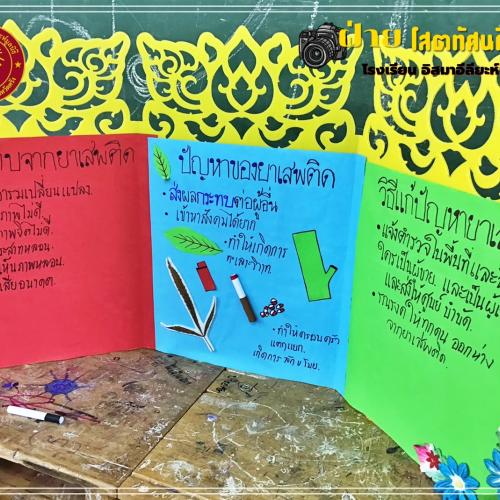 ฝ่าย โสตทัศนศึ
โรงเรียน อิสมาอีลียะห์
บจากยาเสพติด
รมเปลี่ยนแปลง.
ภาพไม่ดี.
ภาพจิตไม่ดี.
ระสาทหลอน.
ห็นภาพหลอน.
เสียอนาคต.
ปัญหาของยาเสพติด
• ส่งผลกระทบต่อผู้อื่น
• เข้าหาสังคมได้ยาก
• ทำให้เกิดการ
ทะเลาะวิวาท.
• ทำให้ครอบครัว
แตกแยก.
เกิดการ ลัก ขโมย.
วิธีแก้ปัญหายาเ
• แจ้งตำรวจในพื้นที่และ
ใครเป็นผู้ขาย. และเป็นผู้เ
และส่งให้ศูนย์ บำบัด.
• รณรงค์ให้ทุกคน ออกห่าง
จากยาเสพติด.